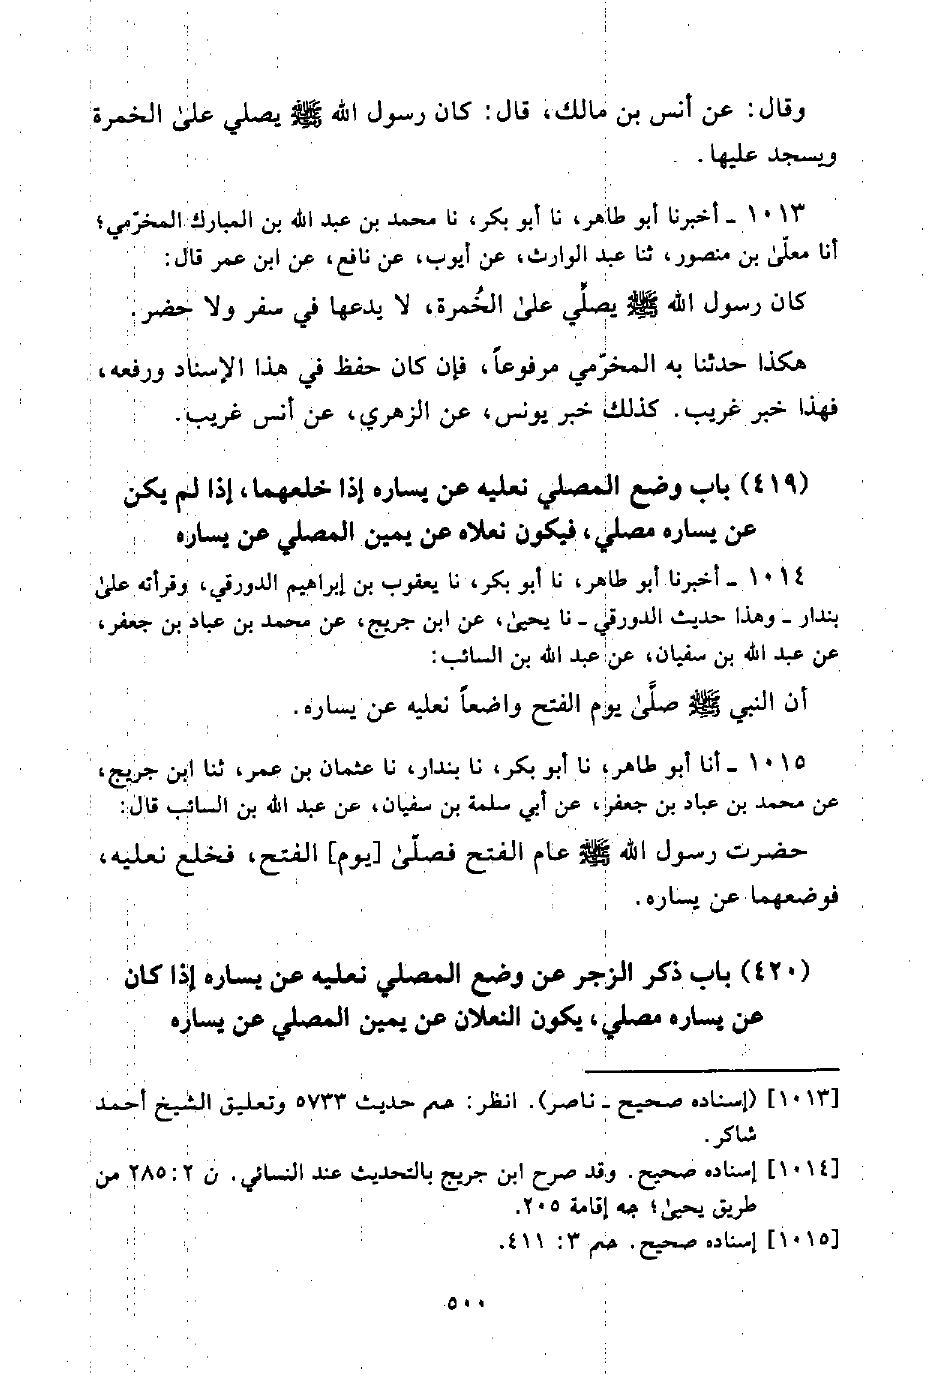 وقال: عن أنس بن مالك، قال: كان رسول الله ﷺ يصلي علىٰ الخمرة
ويسجد عليها.
١٠١٣ ـ أخبرنا أبو طاهر، نا أبو بكر، نا محمد بن عبد الله بن المبارك المخرّمي؛
أنا معلّىٰ بن منصور، ثنا عبد الوارث، عن أيوب، عن نافع، عن ابن عمر قال:
كان رسول الله ﷺ يصلِّي علىٰ الخُمرة، لا يدعها في سفر ولا حضر.
هكذا حدثنا به المخرّمي مرفوعاً، فإن كان حفظ في هذا الإسناد ورفعه،
فهذا خبر غريب. كذلك خبر يونس، عن الزهري، عن أنس غريب.
(٤١٩) باب وضع المصلي نعليه عن يساره إذا خلعهما، إذا لم يكن
عن يساره مصلي، فيكون نعلاه عن يمين المصلي عن يساره
١٠١٤ ـ أخبرنا أبو طاهر، نا أبو بكر، نا يعقوب بن إبراهيم الدورقي، وقرأته علىٰ
بندار ـ وهذا حديث الدورقي ـ نا يحيىٰ، عن ابن جريج، عن محمد بن عباد بن جعفر،
عن عبد الله بن سفيان، عن عبد الله بن السائب:
أن النبي ﷺ صلَّىٰ يوم الفتح واضعاً نعليه عن يساره.
١٠١٥ ـ أنا أبو طاهر، نا أبو بكر، نا بندار، نا عثمان بن عمر، ثنا ابن جريج،
عن محمد بن عباد بن جعفر، عن أبي سلمة بن سفيان، عن عبد الله بن السائب قال:
حضرت رسول الله ﷺ عام الفتح فصلّىٰ [يوم] الفتح، فخلع نعليه،
فوضعهما عن يساره.
(٤٢٠) باب ذكر الزجر عن وضع المصلي نعليه عن يساره إذا كان
عن يساره مصلي، يكون النعلان عن يمين المصلي عن يساره
[١٠١٣] (إسناده صحيح ـ ناصر). انظر: حم حديث ٥٧٣٣ وتعليق الشيخ أحمد
شاكر.
[١٠١٤] إسناده صحيح. وقد صرح ابن جريج بالتحديث عند النسائي. ن ٢: ٢٨٥ من
طريق يحيىٰ؛ جه إقامة ٢٠٥.
[١٠١٥] إسناده صحيح. حم ٣: ٤١١.
٥٠٠